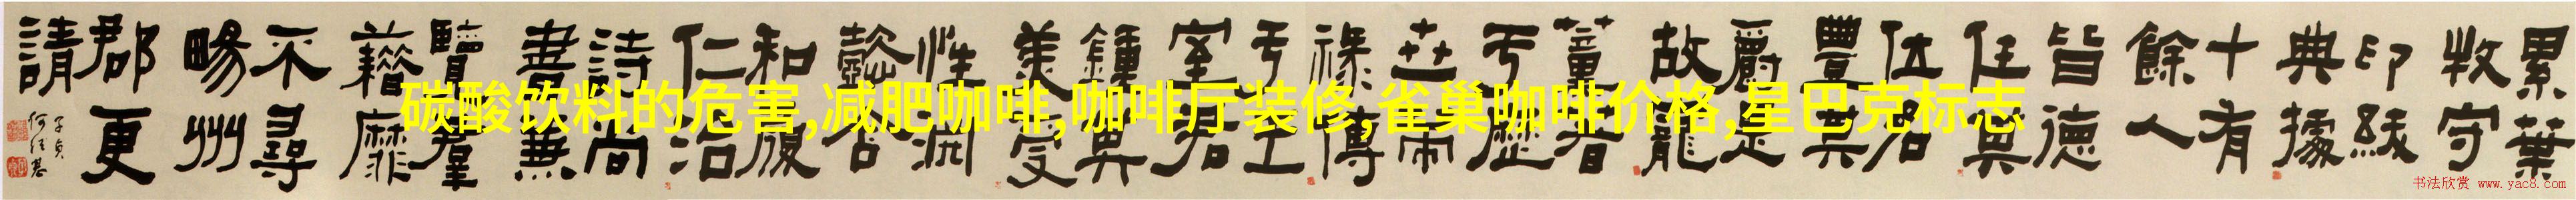 累葉
牧守
印紱
典據
十有
餘人
皆德
任其
位名
豐其
爵是
故龍
薰著
于歷
世策
祿傳
于王
室君
鍾其
美受
性淵
懿含
和履
仁治
詩尚
書兼
覽羣
藉靡
不尋
暘州
郡更
請
子貞
何紹基
碳酸饮料的危害,减肥咖啡,咖啡厅装修,雀巢咖啡价格,星巴克标志
书法欣赏 www.yac8.com